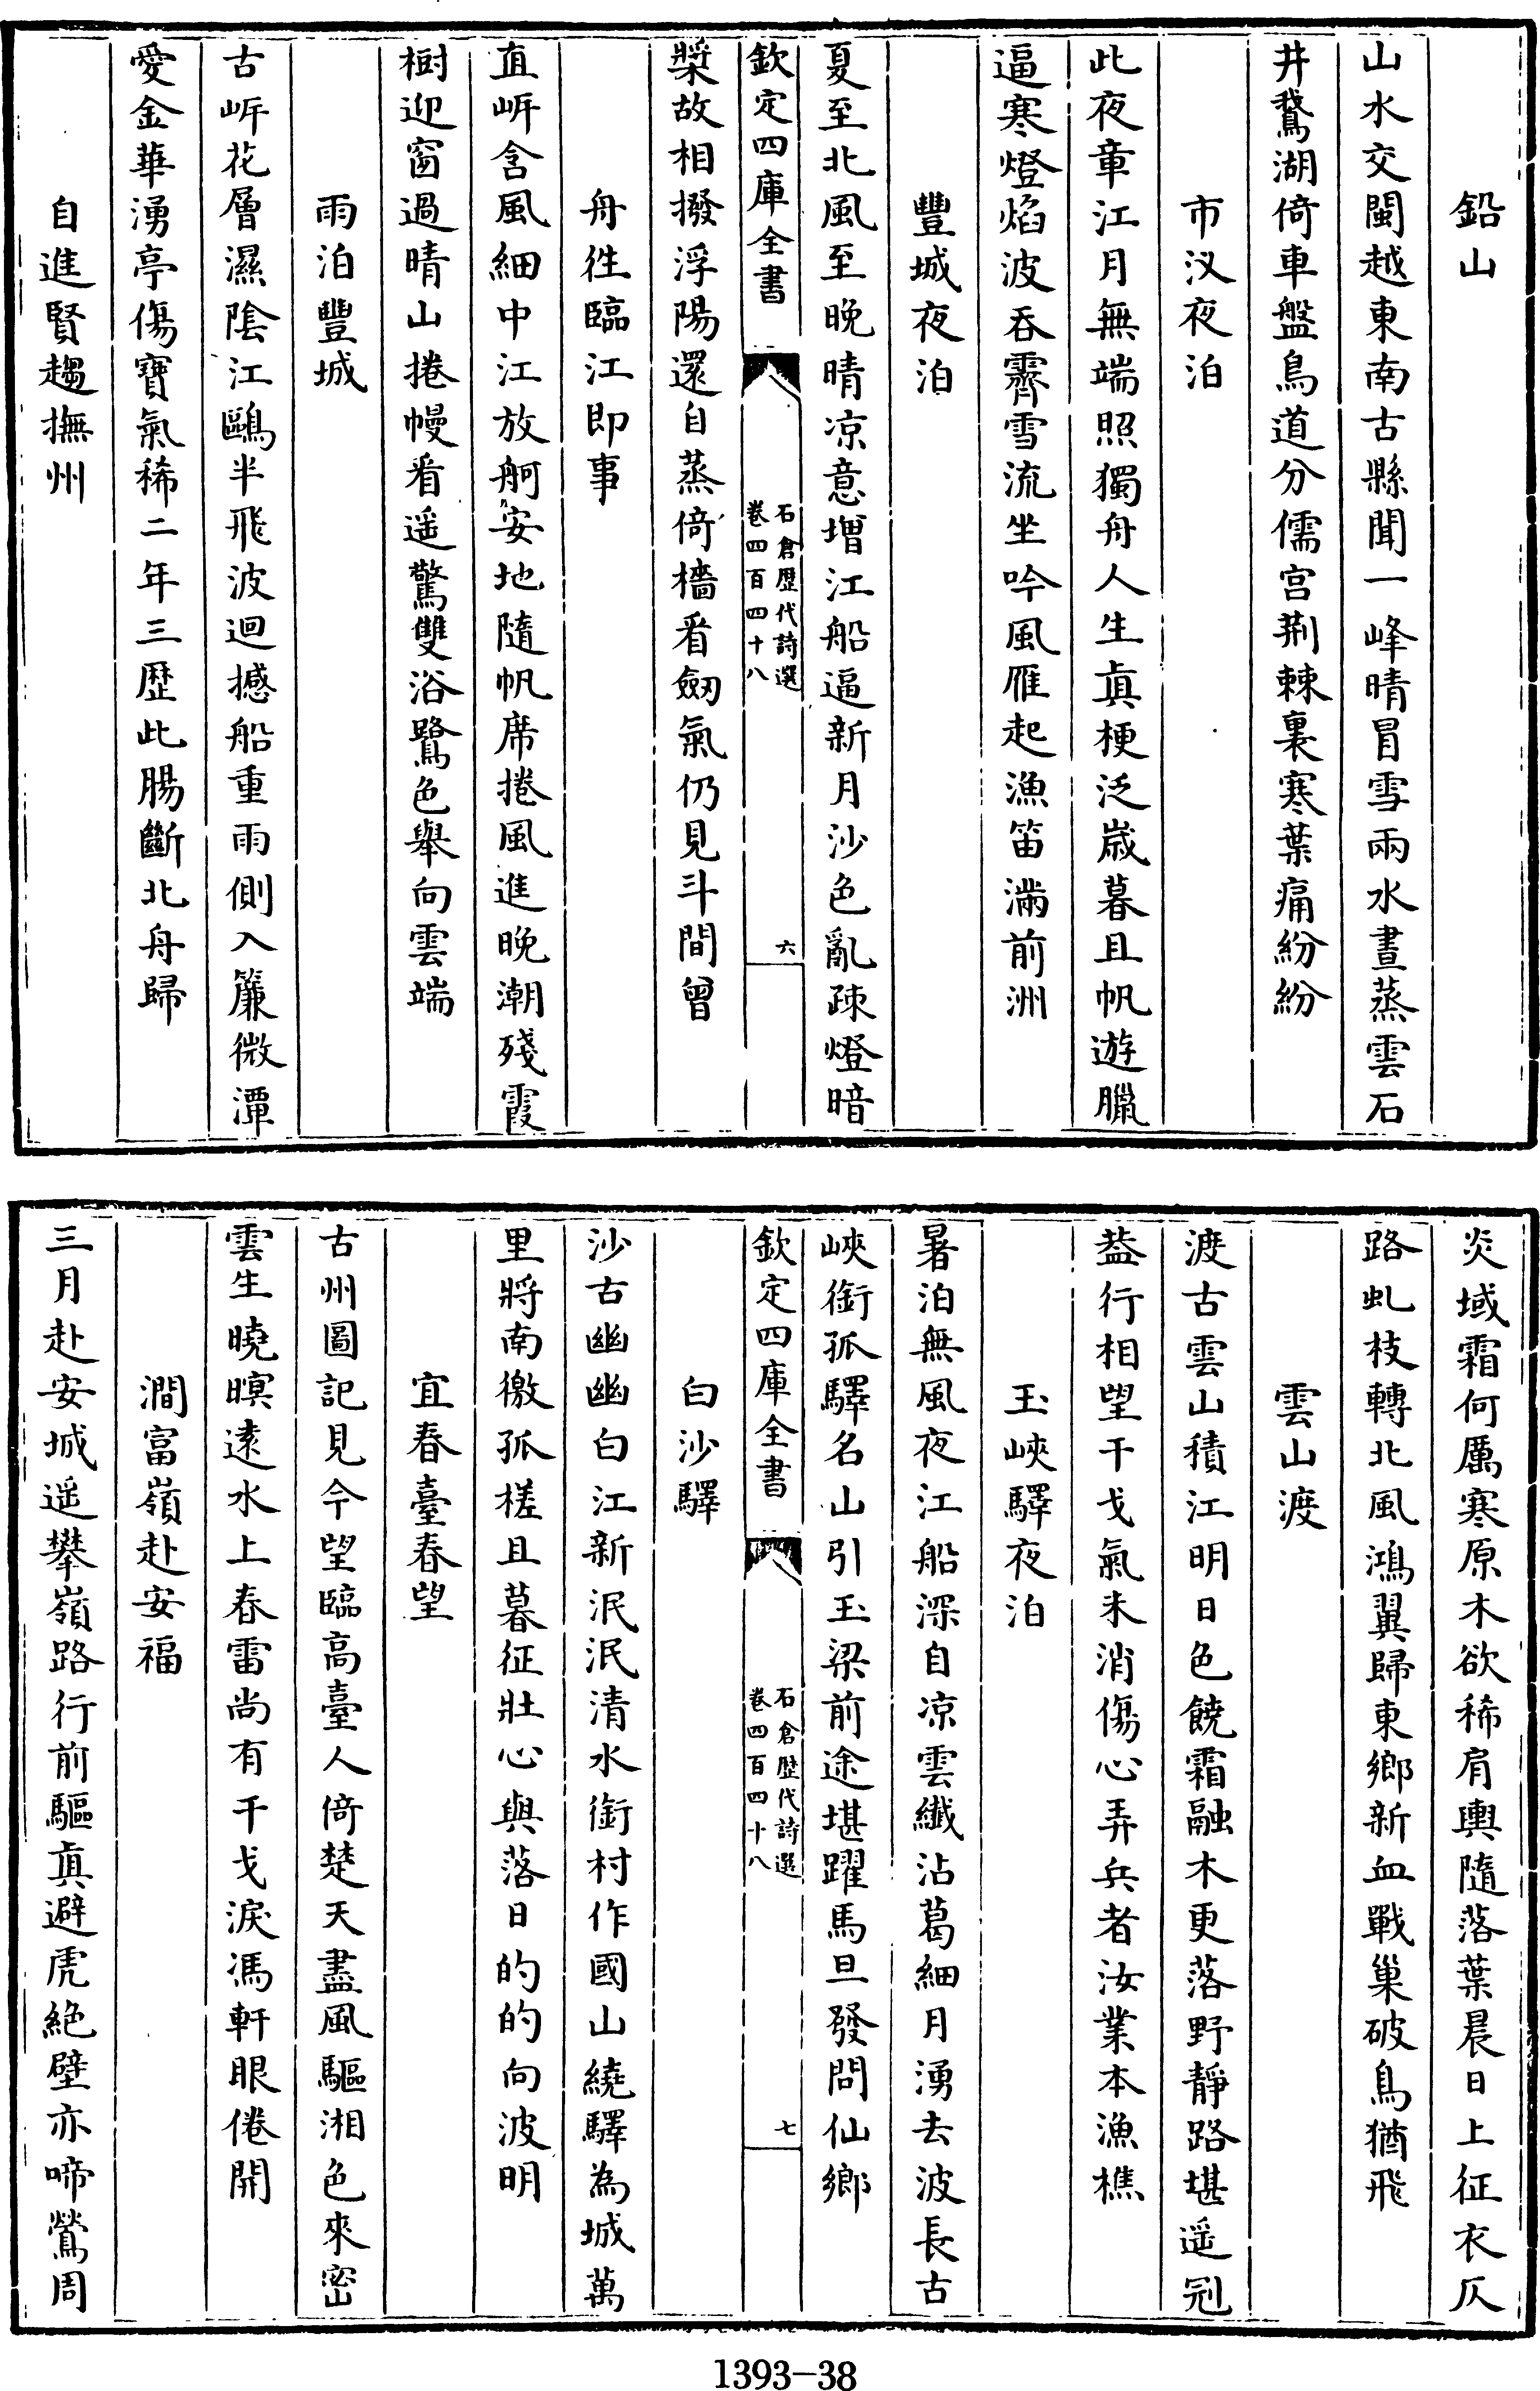 鉛山
山水交閩越東南古縣聞一峰晴冒雪兩水晝蒸雲石
井鵞湖倚車盤鳥道分儒宫荆棘裏寒葉痛紛紛
市汊夜泊
此夜章江月無端照獨舟人生真梗泛嵗暮且帆遊臘
逼寒燈焰波吞霽雪流坐吟風雁起漁笛滿前洲
豐城夜泊
夏至北風至晚晴凉意增江船逼新月沙色亂疎燈暗
欽定四庫全書
石倉歴代詩選
卷四百四十八
六
槳故相撥浮陽還自蒸倚檣看劒氣仍見斗間曾
舟徃臨江即事
直㟁含風細中江放舸安地隨帆席捲風進晚潮殘霞
樹迎窗過晴山捲幔看遥驚雙浴鷺色舉向雲端
雨泊豐城
古㟁花層濕陰江鷗半飛波迴撼船重雨側入簾微潭
愛金華湧亭傷寶氣稀二年三歴此腸斷北舟歸
自進賢趨撫州
炎域霜何厲寒原木欲稀肩輿隨落葉晨日上征衣仄
路虬枝轉北風鴻翼歸東鄉新血戰巢破鳥猶飛
雲山渡
渡古雲山積江明日色饒霜融木更落野靜路堪遥冠
葢行相望干戈氣未消傷心弄兵者汝業本漁樵
玉峽驛夜泊
暑泊無風夜江船深自凉雲纖沾葛細月湧去波長古
峽銜孤驛名山引玉梁前途堪躍馬旦發問仙鄉
欽定四庫全書
石倉歴代詩選
卷四百四十八
七
白沙驛
沙古幽幽白江新泯泯清水銜村作國山繞驛為城萬
里將南徼孤槎且暮征壯心與落日的的向波明
宜春臺春望
古州圖記見今望臨高臺人倚楚天盡風驅湘色來密
雲生曉暝遠水上春雷尚有干戈淚馮軒眼倦開
澗富嶺赴安福
三月赴安城遥攀嶺路行前驅真避虎絶壁亦啼鶯周
1393-38